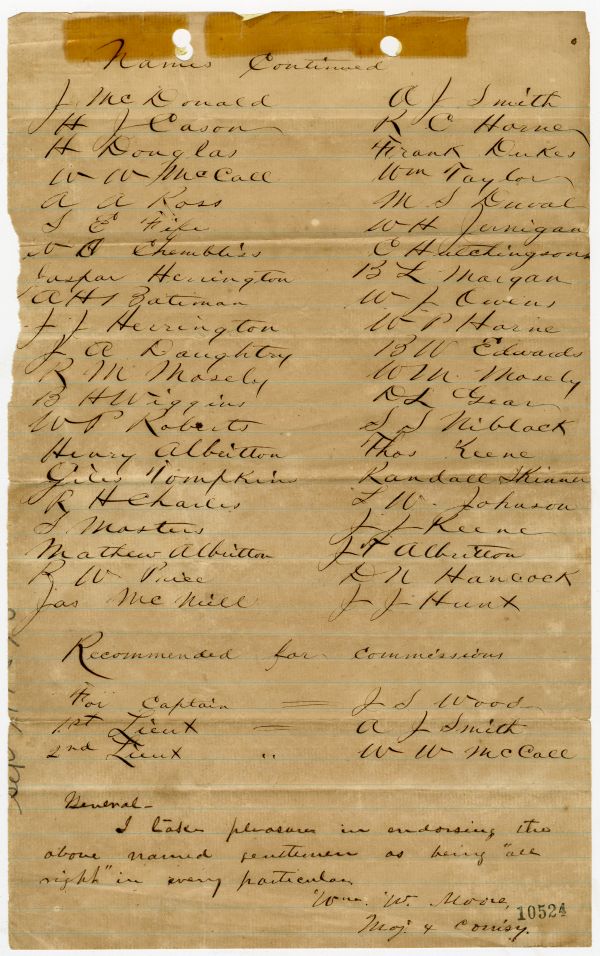 Names Continued
J McDonald A J Smith
H J Cason R C Horne
H Douglas Frank Dukes
W W McCall Wm Taylor
A A Ross M S Duval
S E Fife W H Jernigan
N B Chembliss C Hutchingsons
Caspar Herrington B L Morgan
A H S Bateman W J Owens
J J Herrington W P Horne
J A Daughtry B W Edwards
R M Mosely W M Mosely
B H Wiggins D L Gear
W P Roberts S S Niblack
Henry Albritton Thos Keene
Giles Tompkins Randall Skinner
R H Charles L W. Johnson
S Masters J J Keene
Mathew Albritton J F Albritton
R W Price D N Hancock
Jas McNeill J J Hunt
Recommended for commissions
For Captain = J S Wood
1st Lieut = A J Smith
2nd Lieut " W W McCall
General-
I take pleasure in endorsing the
above named gentlemen as being "all
right" in every particular
Wm. W. Moore,
Maj. & Comsy.
10524